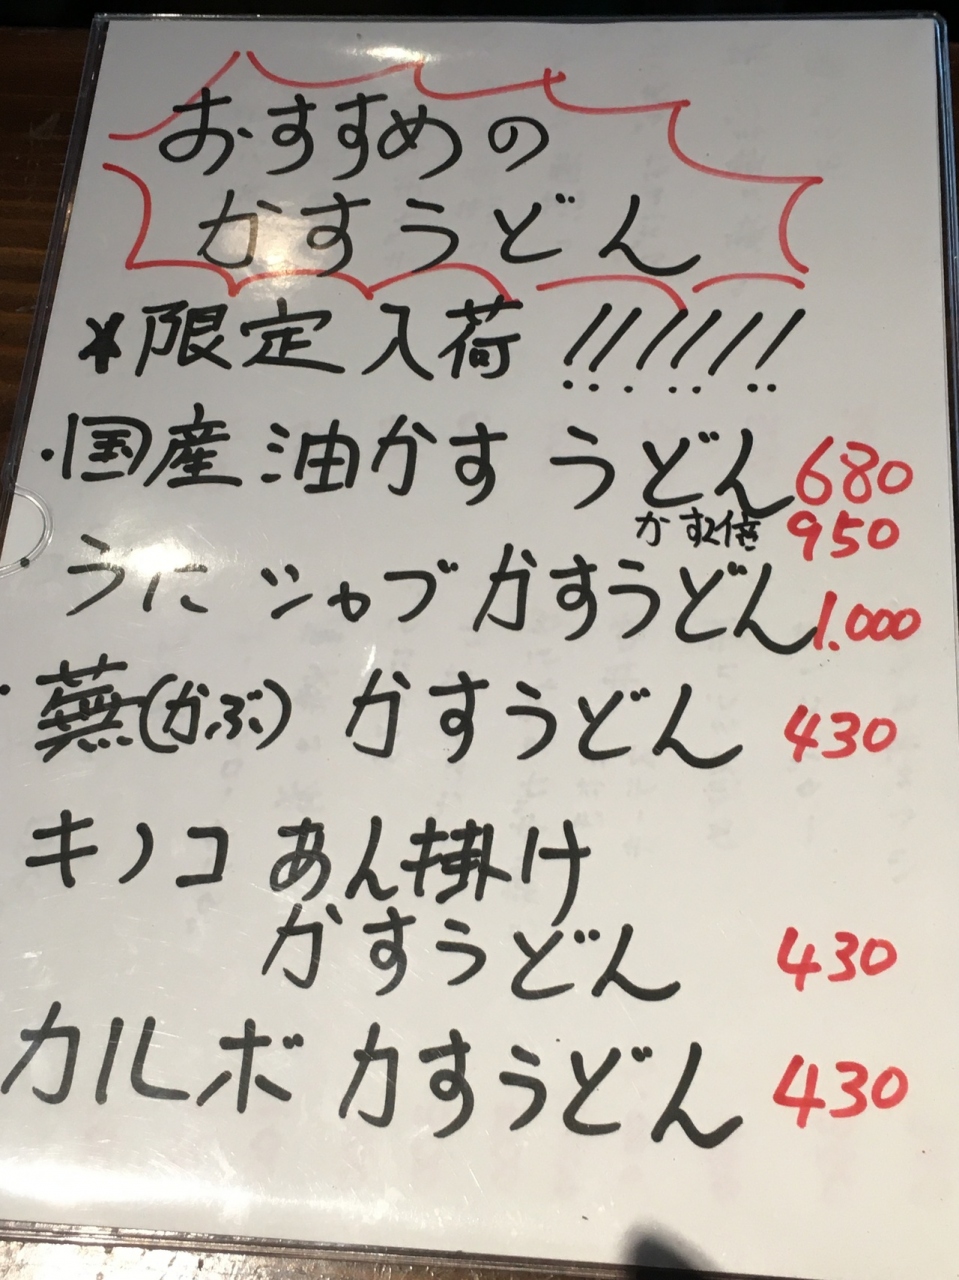 おすすめの
かすうどん
*限定入荷!!!!!!
・国産油かすうどん 680
かす2倍 950
・うにシャブかすうどん 1.000
・蕪(かぶ)かすうどん 430
キノコあん掛け
かすうどん 430
カルボかすうどん 430